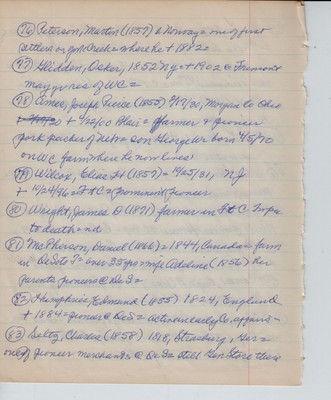 (76) Peterson, Martin (1857) b Norway = one of first
settlers on Creek = where he + 1882 =
(77) Glidden, Oskar, 1852 Ny = + 1902 @ Fremont
many yr res of WC =
(78) Eimer, Joseph Pierce (1855) 9/17/20, Morgan Co Ohio
+ 4/22/00 Blair = farmer & pioneer
pork packer of Neb = son George Wr born 4/5/70
on WC farm where he now lives
(79) Wilcox, Elias H (1857) = 1905/31, NJ
+ 10/24/96 = Ft C = prominent pioneer
(80) Wright, James D (1871) farmer in Ft C Twp
to death = nd
(81) McPherson, Daniel (1866) = 1844, Canada = farm
in DeSoto T = over 55 yr = wife Addine (1856) Her
parents pioneers @ DeS =
(82) Humphries, Edmund (1855) 1824, England
+ 1884 = pioneer @ DeS = active in early Co. affairs -
(83) Seltz, Charles (1858) 1818, Strasburg, Ger =
one of pioneer merchants @ DeS = still Gen Store there